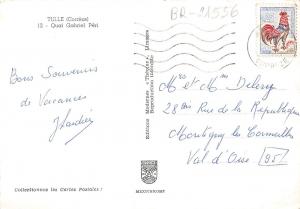 TULLE (Corrèze)
12 - Quai Gabriel Péri
BR-21556
Bons Souvenirs
de Vacances
Mr et Mme
28 Rue de la République
Montigny les Cormeilles
Val d'Oise (95)
Editions Modernes "Théojac", Limoges
Reproduction interdite
Collectionnez les Cartes Postales !
MEXICHROME